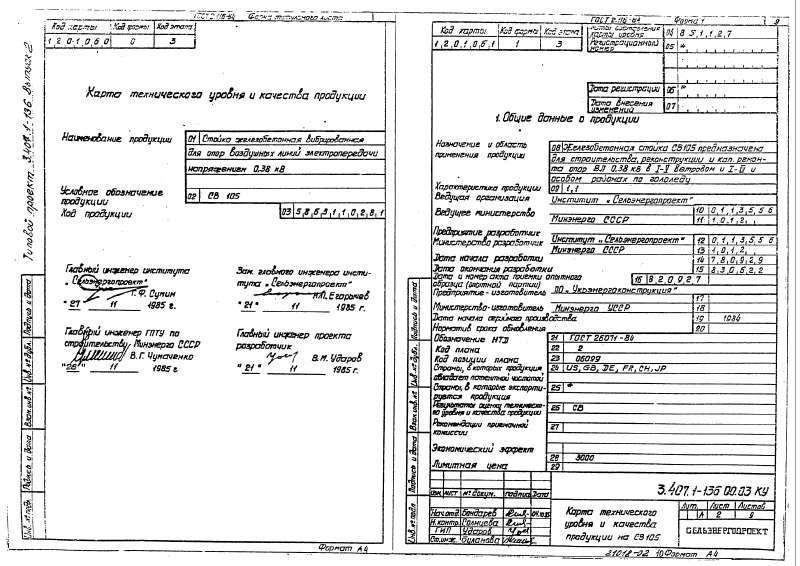 ГОСТ 2.116-84 Форма титульного листа
Код карты Код формы Код этапа
1,2,0,1,0,5,0 0 3
Типовой проект 3.407.1-136 Выпуск 2
Карта технического уровня и качества продукции
Наименование продукции
01 Стойка железобетонная вибрированная
для опор воздушных линий электропередачи
напряжением 0,38 кВ
Условное обозначение продукции
02 СВ 105
Код продукции
03 5,8,6,3,1,1,0,2,8,1
Главный инженер института
"Сельэнергопроект"
Г.Ф. Сумин
"27" 11 1985 г.
Зам. главного инженера инсти-
тута "Сельэнергопроект"
"21" 11 1985 г.
Главный инженер ГПТУ по
строительству, Минэнерго СССР
В.Г. Чумаченко
"26" 11 1985 г.
Главный инженер проекта
разработчик
В.М. Ударов
"21" 11 1985 г.
Инв. № подл. Подпись и дата Взам. инв. № Инв. № дубл. Подпись и дата
Формат А4
ГОСТ 2.116-84 Форма 1 9
Код карты Код формы Код этапа
1,2,0,1,0,5,1 1 3
карты уровня 04 8 5,1,1,2,7
Регистрационный номер 05 *
Дата регистрации 06 *
Дата внесения изменений 07
1. Общие данные о продукции
Назначение и область применения продукции
08 Железобетонная стойка СВ105 предназначена
для строительства, реконструкции и кап. ремон-
та опор ВЛ 0,38 кВ в I-V ветровом и I-IV и
особом районах по гололеду
Характеристика продукции 09 1,1
Ведущая организация Институт "Сельэнергопроект"
10 0,1,1,3,5,5,6
Ведущее министерство Минэнерго СССР 11 1,0,1,2,
Предприятие разработчик Институт "Сельэнергопроект" 12 0,1,1,3,5,5,6
Министерство разработчик Минэнерго СССР 13 1,0,1,2,
Дата начала разработки 14 7,8,0,9,2,9
Дата окончания разработки 15 8,3,0,5,2,2
Дата и номер акта приемки опытного
образца (опытной партии) 16 8,2,0,9,2,7
Предприятие-изготовитель ПО "Укрэнергоконструкция"
17
Министерство-изготовитель Минэнерго УССР 18
Дата начала серийного производства 19 1984
Норматив срока обновления 20
Обозначение НТД 21 ГОСТ 26071-84
Код плана 22 2
Код позиции плана 23 06099
Страны, в которых продукция
обладает патентной чистотой 24 US, GB, DE, FR, CH, JP
Страны, в которые экспорти-
руется продукция 25 *
Результаты оценки техническо-
го уровня и качества продукции 26 СВ
Рекомендации приемочной
комиссии 27
Экономический эффект 28 3000
Лимитная цена 29
3.407.1-136 00.03 КУ
Изм. Лист № докум. Подпись Дата
Нач. отд. Бондарев
Н. контр. Солнцева
ГИП Ударов
Ст. инж. Буланова
Карта технического
уровня и качества
продукции на СВ105
Лит. Лист Листов
А 2 9
СЕЛЬЭНЕРГОПРОЕКТ
Инв. № подл. Подпись и дата Взам. инв. № Инв. № дубл. Подпись и дата
21018-02 10 Формат А4